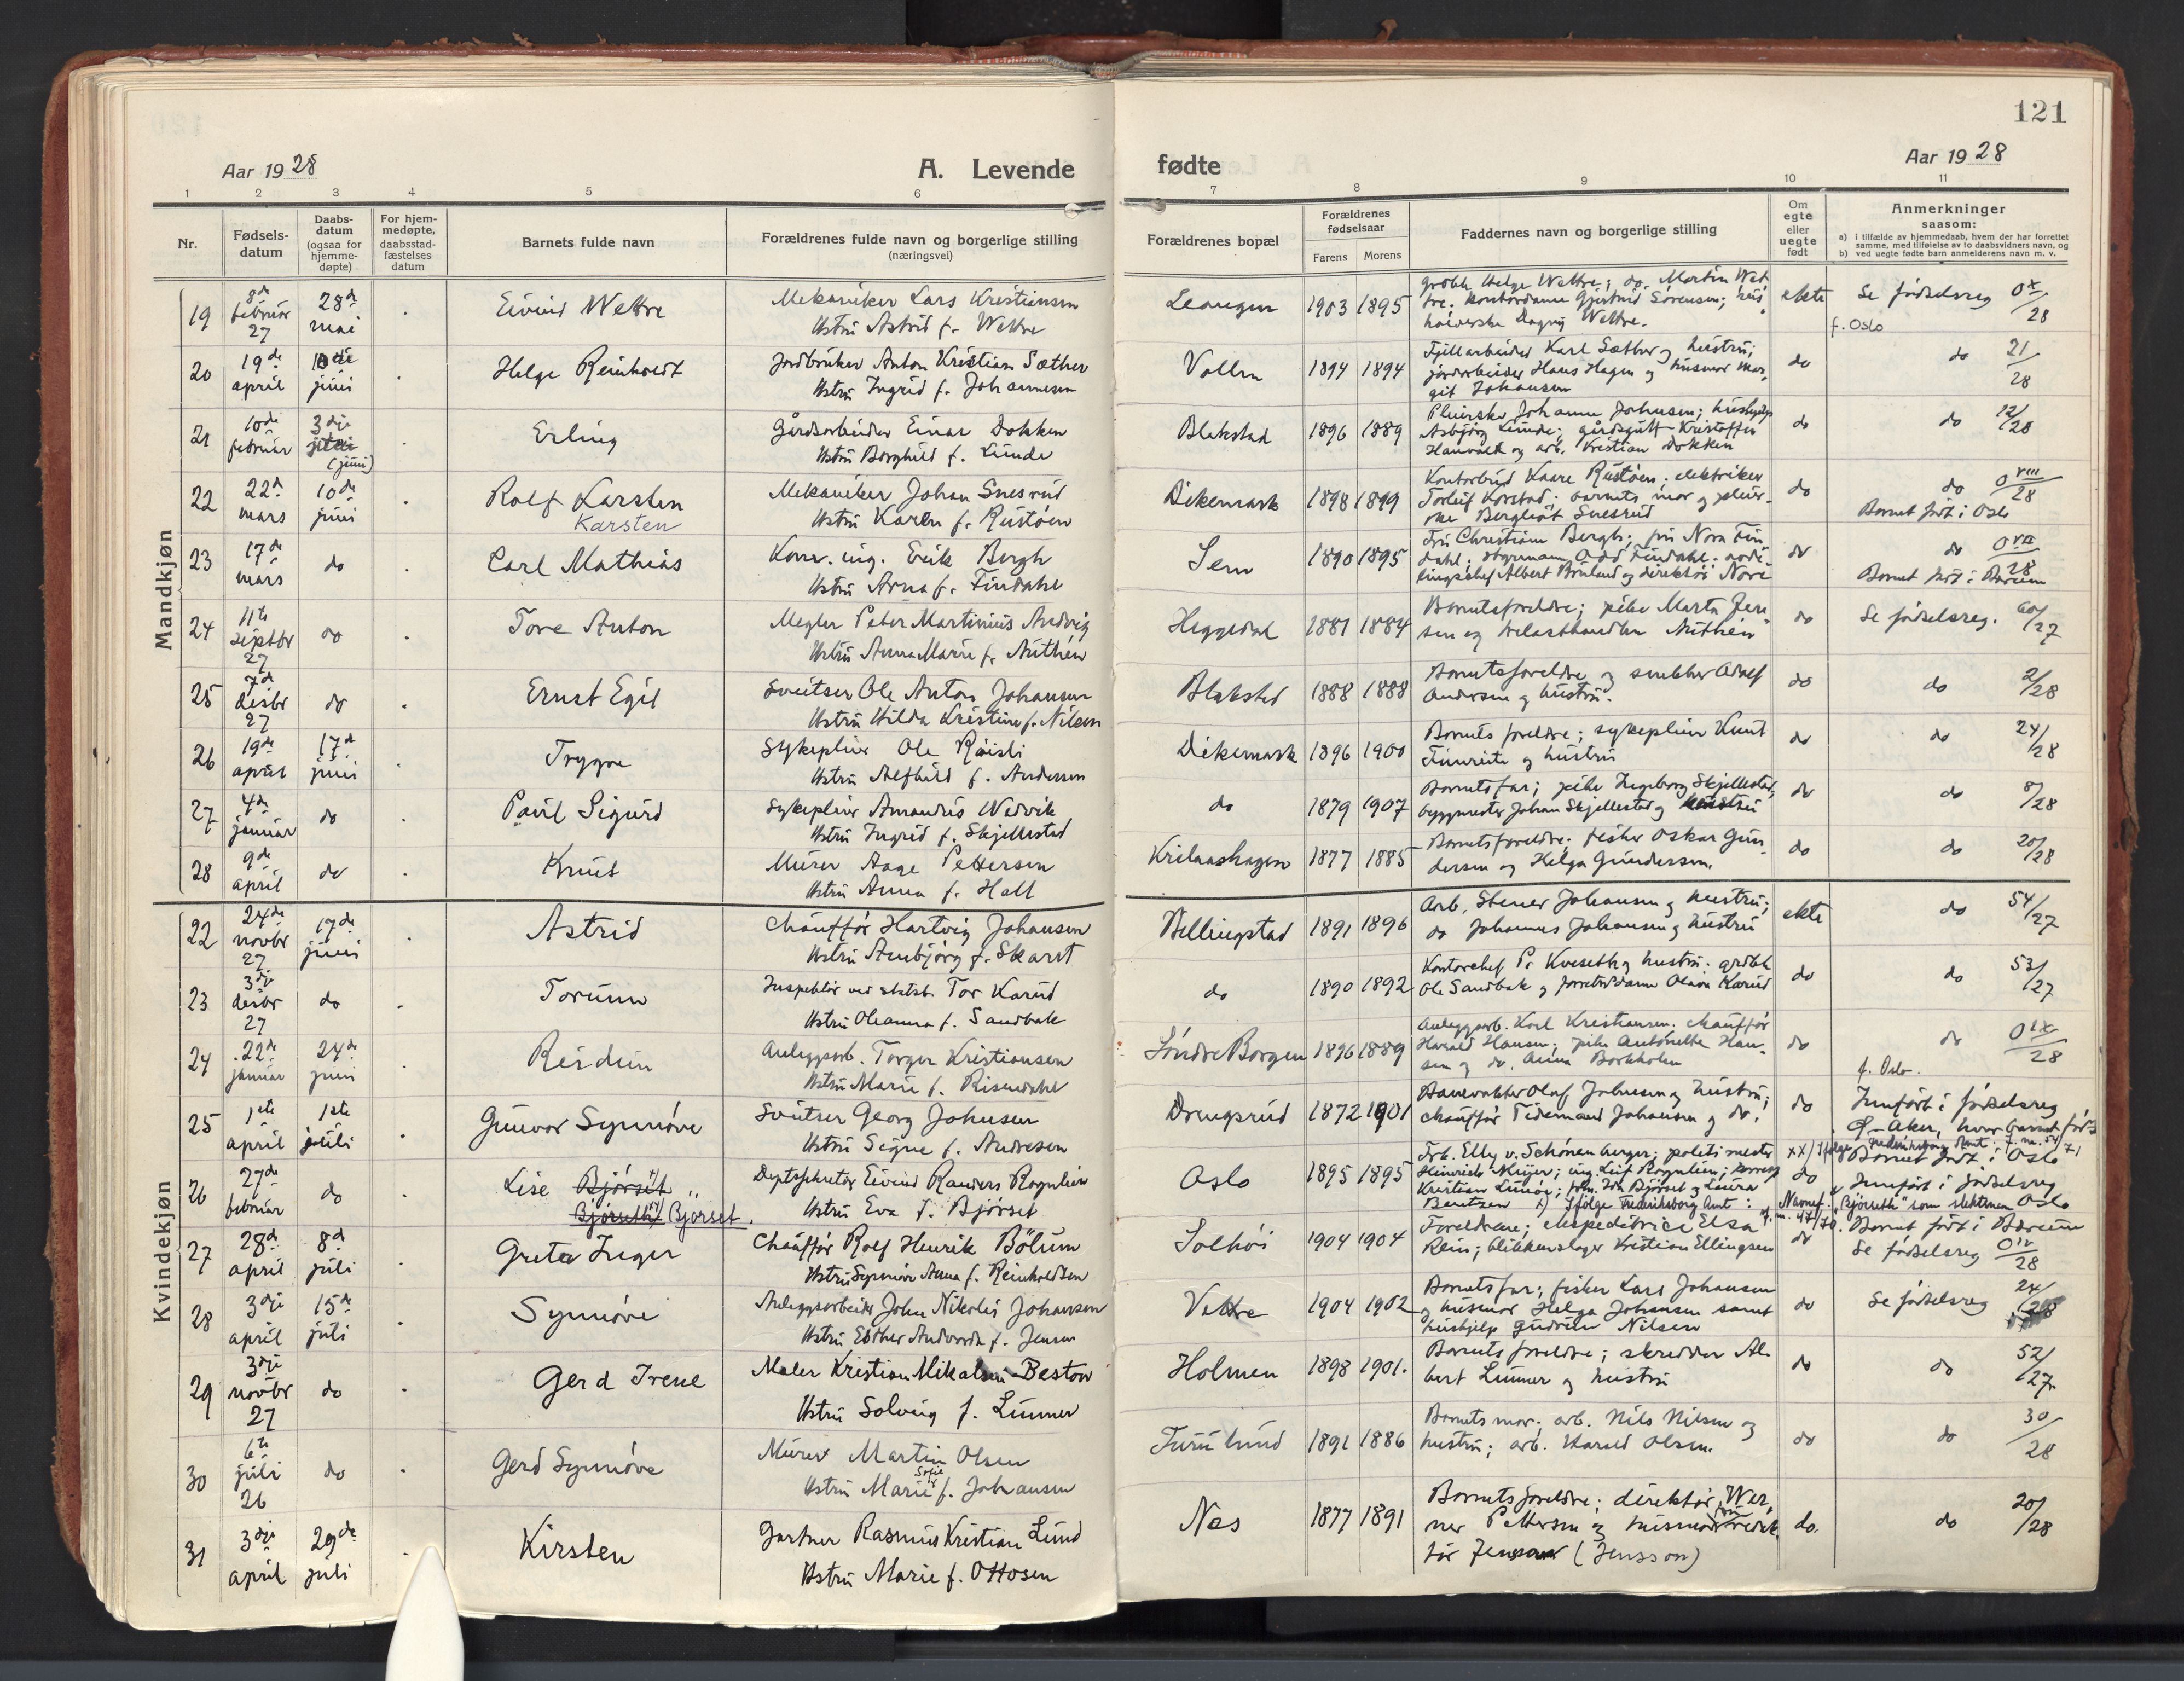 121
Aar 1928
A. Levende
fødte
Aar 1928
1 2 3 4 5 6 7 8 9 10 11
Nr.
Fødsels-
datum
Daabs-
datum
(ogsaa for
hjemme-
døpte)
For hjem-
medøpte,
daabsstad-
fæstelses
datum
Barnets fulde navn
Forældrenes fulde navn og borgerlige stilling
(næringsvei)
Forældrenes bopæl
Forældrenes
fødselsaar
Farens Morens
Faddernes navn og borgerlige stilling
Om
egte
eller
uegte
født
Anmerkninger
saasom:
a) i tilfælde av hjemmedaab, hvem der har forrettet
samme, med tilføielse av to daabsvidners navn, og
b) ved uegte fødte barn anmelderens navn m. v.
Mandkjøn
19 8de februar 27 28de mai Eivind Wettre
Mekaniker Lars Kristiansen
Hstru Astrid f. Wettre
Leangen 1903 1895
grobh. Helge Wettre; do. Martin Wet-
tre. kontordame Gjertrud Sørensen; hus-
holderske Dagny Wettre.
ekte Se fødselsreg 0x/28
f. Oslo
20 19de april 10de juni Helge Reinholdt
Jordbruker Anton Kristian Sæther
Hstru Ingrid f. Johannesen
Vollen 1894 1894
Fjellarbeider Karl Sæther og hustru;
jordarbeider Hans Hagen og husmor Mar-
git Johansen
do do 21/28
21 10de februar 3dje juni (juni) Erling
Gårdsarbeider Einar Dokken
Hstru Borghild f. Lunde
Blakstad 1896 1889
Pleierske Johanne Johnsen; hushjelp
Asbjørg Lunde; gårdsgutt Kristoffer
Hanvold og arb. Kristian Dokken
do do 12/28
22 22de mars 10de juni Rolf Karsten
Karsten
Mekaniker Johan Snesrud
Hstru Karen f. Rustøen
Dikemark 1898 1899
Kontorbud Kaare Rustøen; elektriker
Torleif Korstad; barnets mor og pleier-
ske Bergliot Snesrud
do do 0VIII/28
Barnet født i Oslo
23 17de mars do Carl Mathias
Konsr. ing. Erik Bergh
Hstru Arna f. Findahl
Sem 1890 1895
Fru Christiane Bergh; fru Nora Fin-
dahl; styrmann Odd Findahl; avde-
lingschef Albert Brinland og direktør Nore
do do 0VII/28
Barnet født i Bærum
24 11te septbr 27 do Tore Anton
Megler Peter Martinius Andvig
Hstru Anna Marie f. Authén
Heggedal 1881 1884
Barnets foreldre; pike Marta Jen-
sen og trelasthandler Authén
do Se fødselsreg. 60/27
25 7de desbr 27 do Ernst Egil
Sveitser Ole Anton Johansen
Hstru Hilda Kristine f. Nilsen
Blakstad 1888 1888
Barnets foreldre og snekker Adolf
Andersen og hustru.
do do 2/28
26 19de april 17de juni Trygve
Sykepleier Ole Røisli
Hstru Alfhild f. Andersen
Dikemark 1896 1900
Barnets foreldre; sykepleier Knut
Finreite og hustru
do do 24/28
27 4de januar do Paul Sigurd
Sykepleier Amandus Wedvik
Hstru Ingrid f. Skjellestad
do 1879 1907
Barnets far; pike Ingeborg Skjellestad;
byggmester Johan Skjellestad og hustru
do do 8/28
28 9de april do Knut
Murer Aage Pettersen
Hstru Anna f. Hall
Krilaashagen 1877 1885
Barnets foreldre; fisker Oskar Gun-
dersen og Helga Gundersen.
do do 20/28
Kvindekjøn
22 24de novbr 27 17de juni Astrid
Chauffør Hartvig Johansen
Hstru Annbjørg f. Skaret
Billingstad 1891 1896
Arb. Stener Johansen og hustru;
do Johannes Johansen og hustru
ekte do 54/27
23 3dje desbr 27 do Torunn
Inspektør ved statsb. Tor Karud
Hstru Oleanna f. Sandbak
do 1890 1892
Kontorchef P. Kveseth og hustru; grobh.
Ole Sandbak og forretn.dame Olava Karud
do do 53/27
24 22de januar 24de juni Reidun
Anleggsarb. Torger Kristiansen
Hstru Marie f. Risendahl
Søndre Borgen 1896 1889
Anleggsarb. Karl Kristiansen. chauffør
Harald Hansen; pike Antonette Han-
sen og do. Anna Borkholm
do do 0IX/28
f. Oslo.
25 1ste april 1ste juli Gunvor Synnøve
Sveitser Georg Johnsen
Hstru Signe f. Andresen
Drengsrud 1872 1901
Banevokter Olaf Johnsen og hustru;
chauffør Tidemand Johansen og do.
do Innført i fødselsreg
f. Aker, hvor barnet født
26 27de februar do Lise Bjørset
Bjørseth Bjørset.
Deptssekretær Eivind Randers Rognlien
Hstru Eva f. Bjørset
Oslo 1895 1895
Frk. Elly v. Schønenberger; politimester
Heinrich Meijer; ing. Leif Rognlien;
Kristian Lunde; frkn. Ida Bjørset og Laura
Berntzen x) Ifølge Fredriksborg Amt:
do xx) Ifølge Fredriksborg Amt
Barnet født i Oslo
Innført i fødselsreg
Navnet "Bjørseth" som slektsnavn Oslo
27 28de april 8de juli Greta Inger
Chauffør Rolf Henrik Bölum
Hstru Synnøve Anna f. Reinholdtsen
Solhøi 1904 1904
Foreldrene; ekspeditrice Elsa
Rein; blikkenslager Kristian Ellingsen
do Barnet født i Bærum
Se fødselsreg 0IV/28
28 3dje april 15de juli Synnøve
Anleggsarbeider John Nikolai Johansen
Hstru Esther Andvorda f. Jensen
Vettre 1904 1902
Barnets far; fisker Lars Johansen
og husmor Helga Johansen samt
hushjelp Gudrun Nilsen
do Se fødselsreg 24/28
29 3dje novbr 27 do Gerd Irene
Maler Kristian Mikalsen Beston
Hstru Solveig f. Linner
Holmen 1898 1901.
Barnets foreldre; skredder Al-
bert Linner og hustru
do do 52/27
30 6te juli 26 do Gerd Synnøve
Murer Martin Olsen
Hstru Marie Sofie f. Johansen
Furulund 1891 1886
Barnets mor; arb. Nils Nilsen og
hustru; arb. Harald Olsen.
do do 30/28
31 3dje april 29de juli Kirsten
Gartner Rasmus Kristian Lund
Hstru Marie f. Ottosen
Nes 1877 1891
Barnets foreldre; direktør Wer-
ner Pettersen og husmor fru redak-
tør Jensson (Jensson)
do. do 20/28